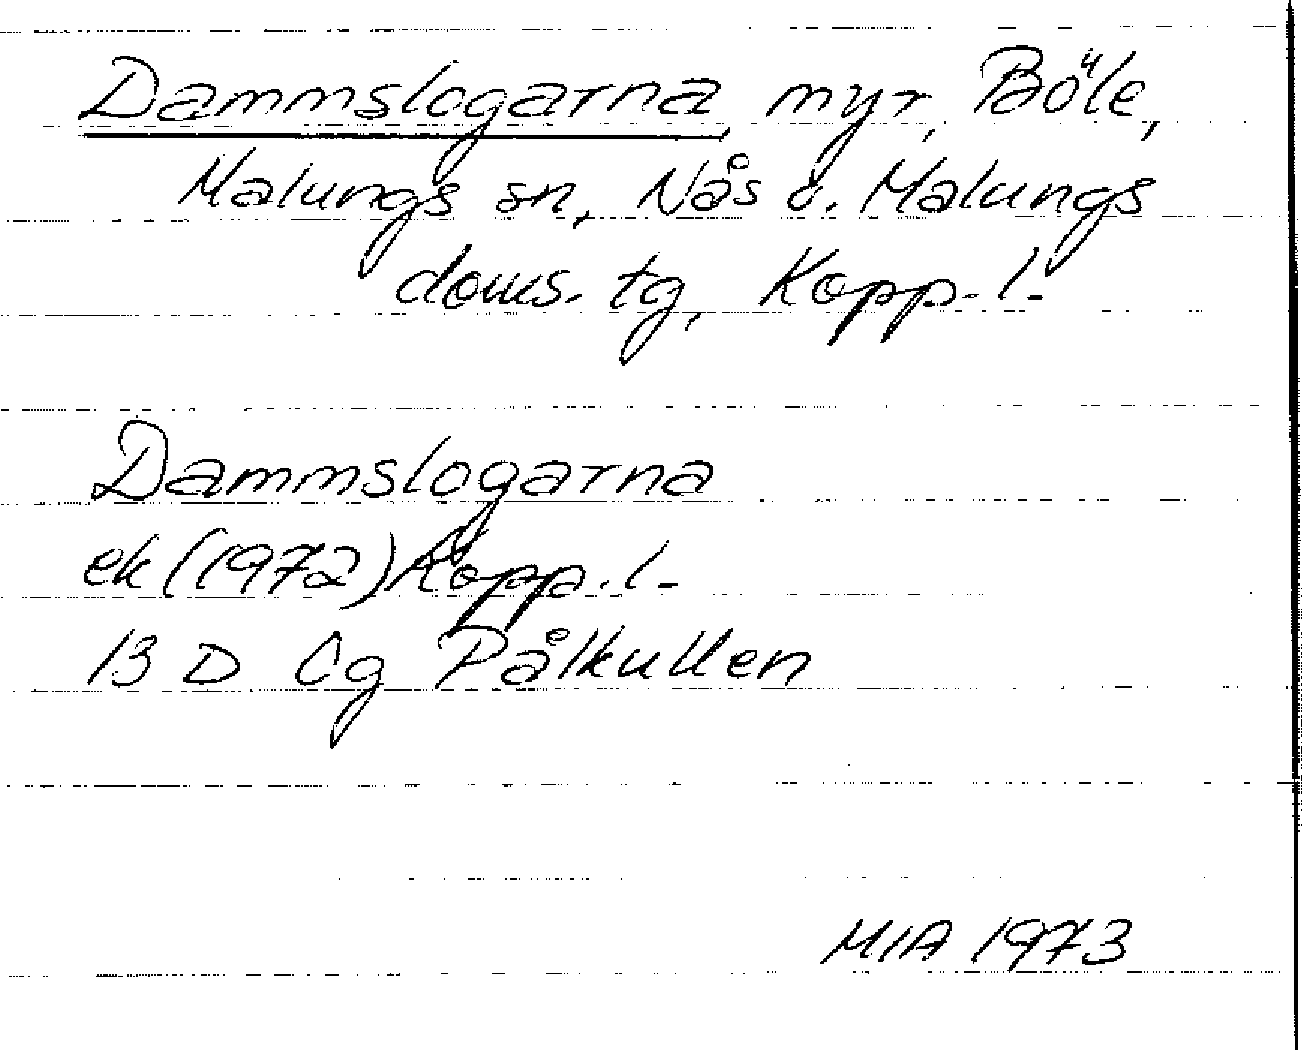 Dammslogarna, myr, Böle,
Malungs sn, Nås o. Malungs
doms. tg, Kopp. l.
Dammslogarna
ek (1972) Kopp. l.
13 D 0g Pålkullen
MIA 1973